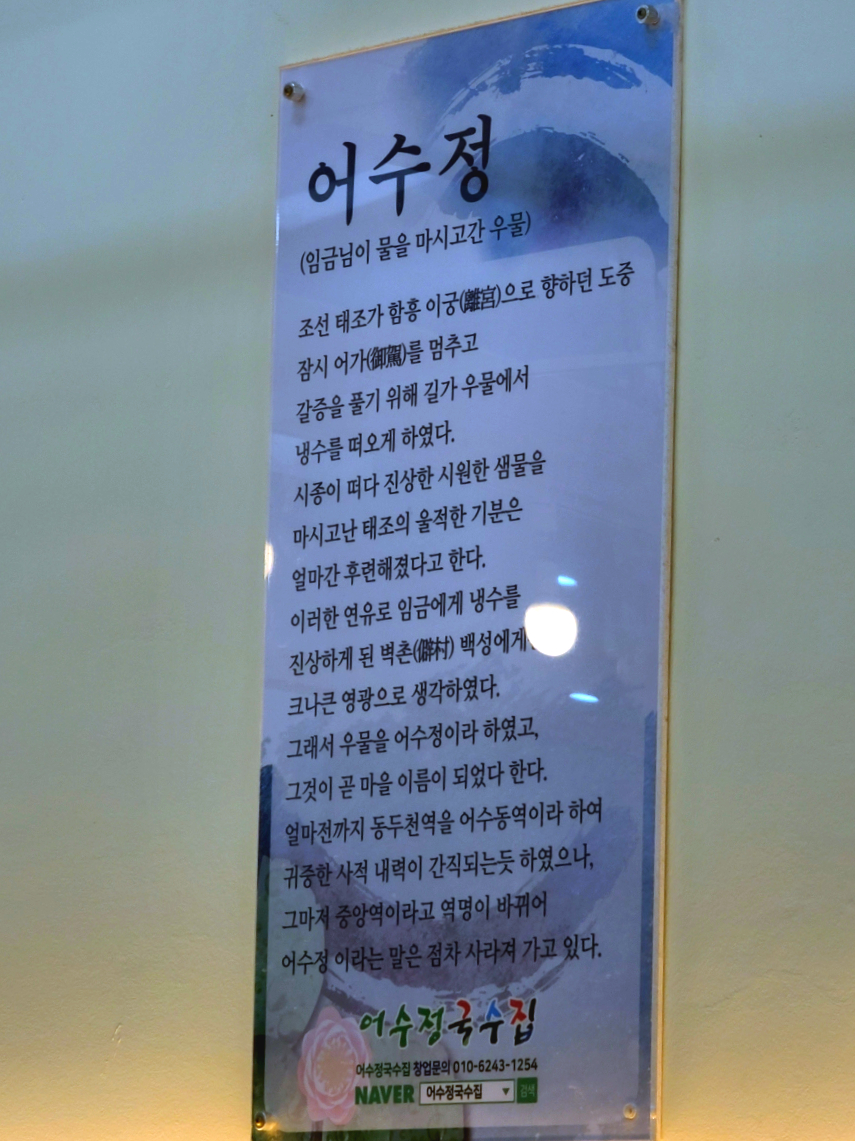 어수정
(임금님이 물을 마시고간 우물)
조선 태조가 함흥 이궁(離宮)으로 향하던 도중
잠시 어가(御駕)를 멈추고
갈증을 풀기 위해 길가 우물에서
냉수를 떠오게 하였다.
시종이 떠다 진상한 시원한 샘물을
마시고난 태조의 울적한 기분은
얼마간 후련해졌다고 한다.
이러한 연유로 임금에게 냉수를
진상하게 된 벽촌(僻村) 백성에게
크나큰 영광으로 생각하였다.
그래서 우물을 어수정이라 하였고,
그것이 곧 마을 이름이 되었다 한다.
얼마전까지 동두천역을 어수동역이라 하여
귀중한 사적 내력이 간직되는듯 하였으나,
그마저 중앙역이라고 역명이 바뀌어
어수정 이라는 말은 점차 사라져 가고 있다.
어수정국수집
어수정국수집 창업문의 010-6243-1254
NAVER 어수정국수집 ▼ 검색